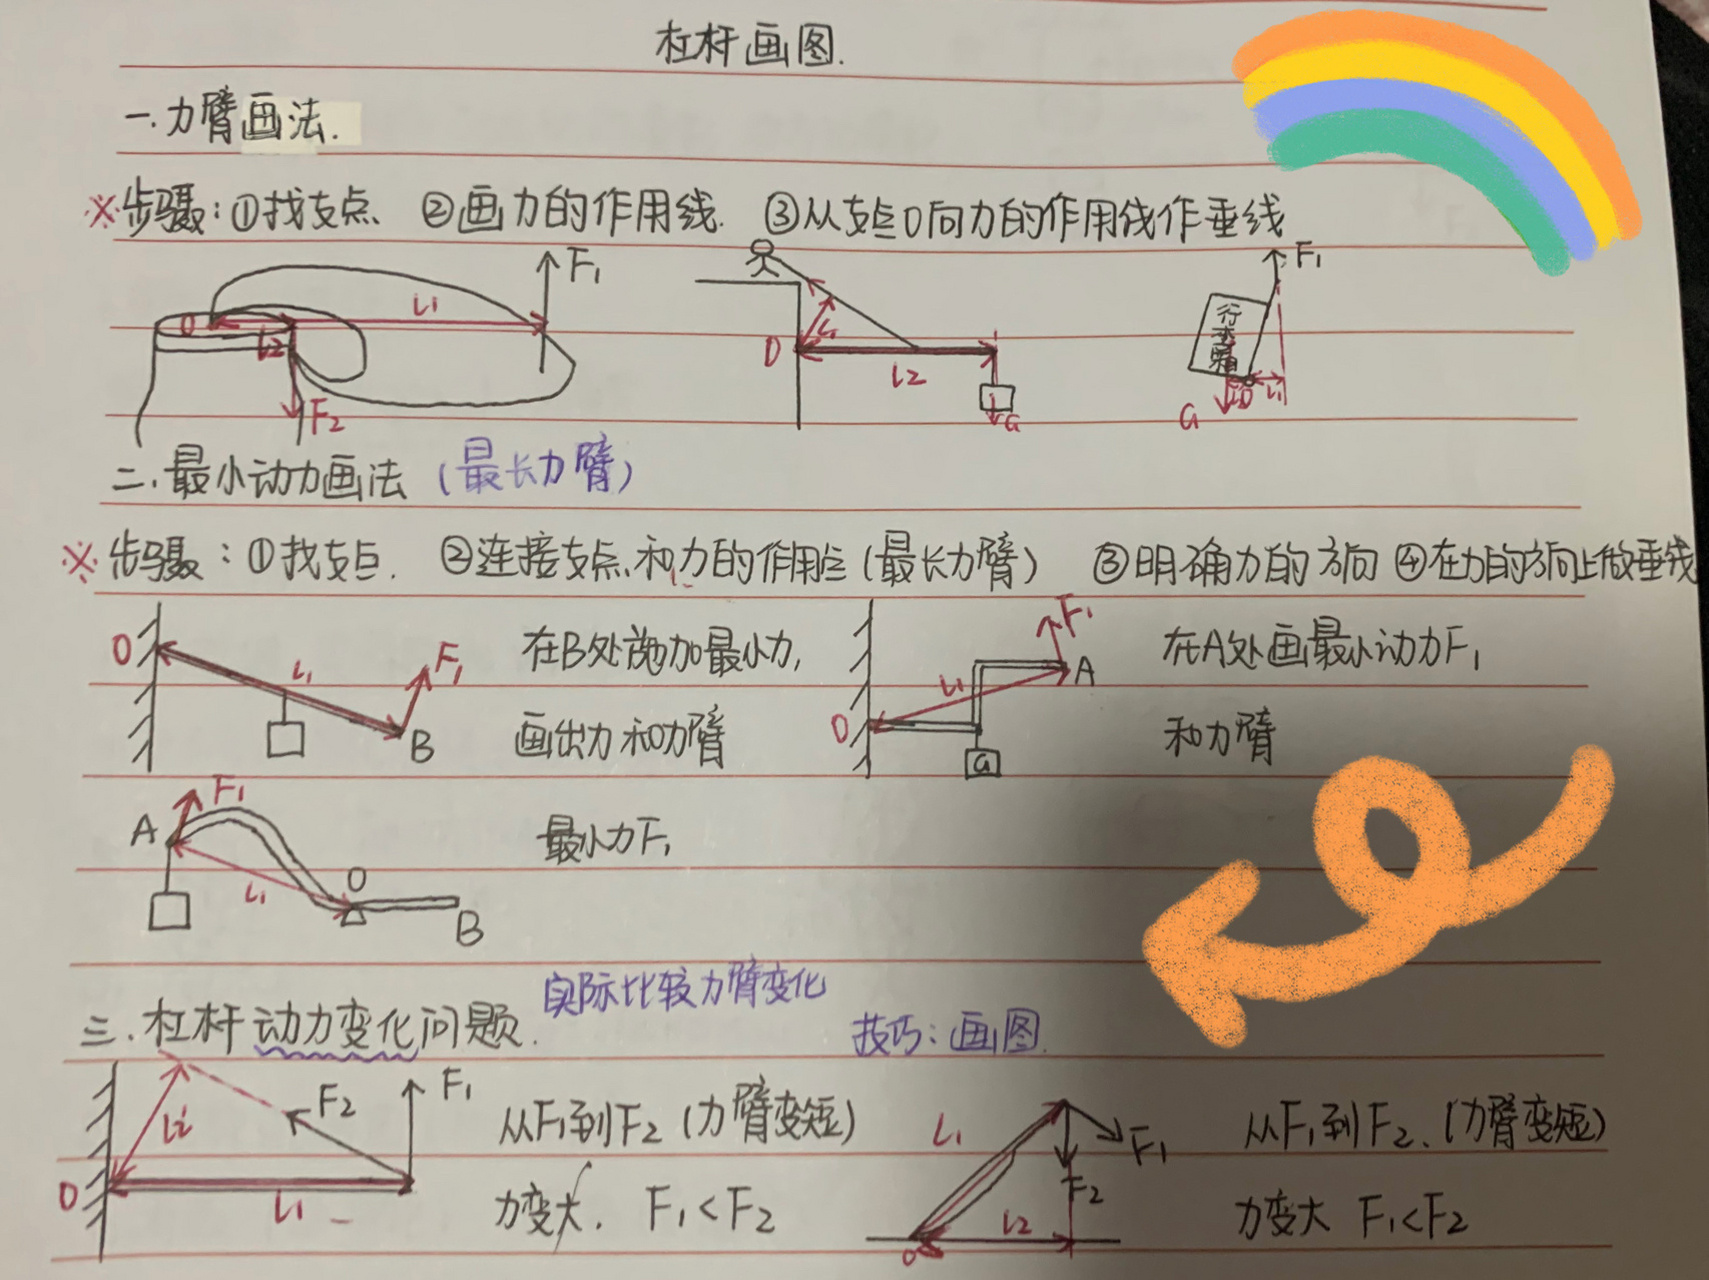 杠杆画图.
一.力臂画法.
※步骤:①找支点. ②画力的作用线. ③从支点O向力的作用线作垂线
F₁ L₁ O L₂ F₂
O L₁ L₂ G
F₁ 行李箱 O L₂ L₁ G
二.最小动力画法(最长力臂)
※步骤:①找支点. ②连接支点和力的作用点(最长力臂) ③明确力的方向 ④在力的方向上做垂线
O L₁ F₁ B 在B处施加最小力,
画出力和力臂
O L₁ F₁ A G 在A处画最小动力F₁
和力臂
A F₁ L₁ O B 最小力F₁
三.杠杆动力变化问题. 实际比较力臂变化 技巧:画图.
O L₂ F₂ F₁ L₁ 从F₁到F₂(力臂变短)
力变大. F₁<F₂
L₁ F₁ F₂ L₂ O 从F₁到F₂.(力臂变短)
力变大 F₁<F₂